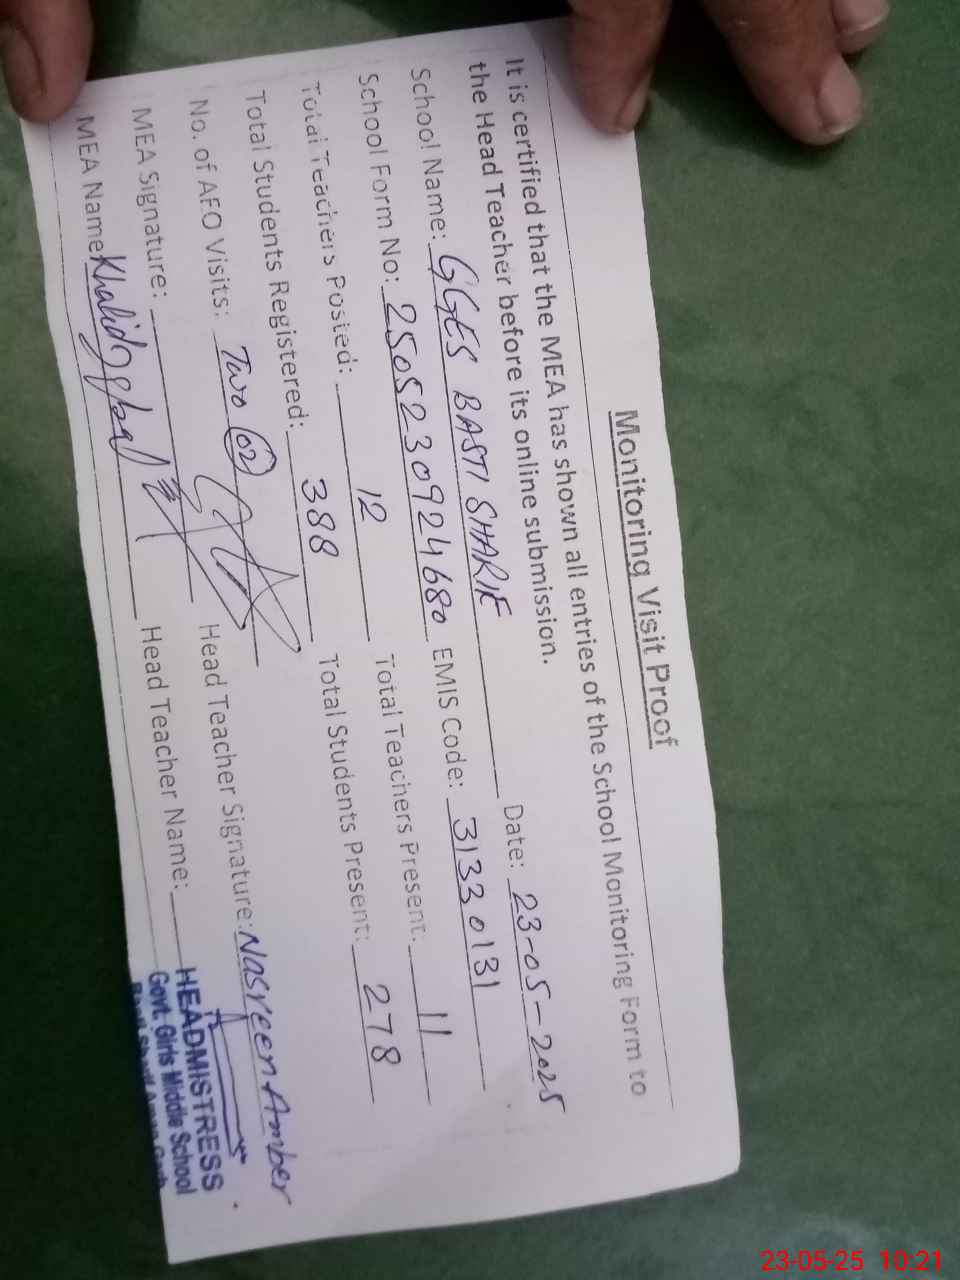 Monitoring Visit Proof
It is certified that the MEA has shown all entries of the School Monitoring Form to
the Head Teacher before its online submission.
School Name: GGES BASTI SHARIF Date: 23-05-2025
School Form No: 2505230924680 EMIS Code: 31330131
Total Teachers Posted: 12 Total Teachers Present: 11
Total Students Registered: 388 Total Students Present: 278
No. of AEO Visits: Two 02
MEA Signature: Head Teacher Signature: Nasreen Amber
MEA Name Khalid Iqbal Head Teacher Name:
HEADMISTRESS
Govt. Girls Middle School
23-05-25 10:21